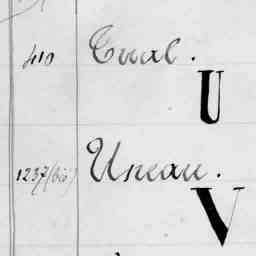 410 Tural.
U
1237 (bis) Uneau.
V